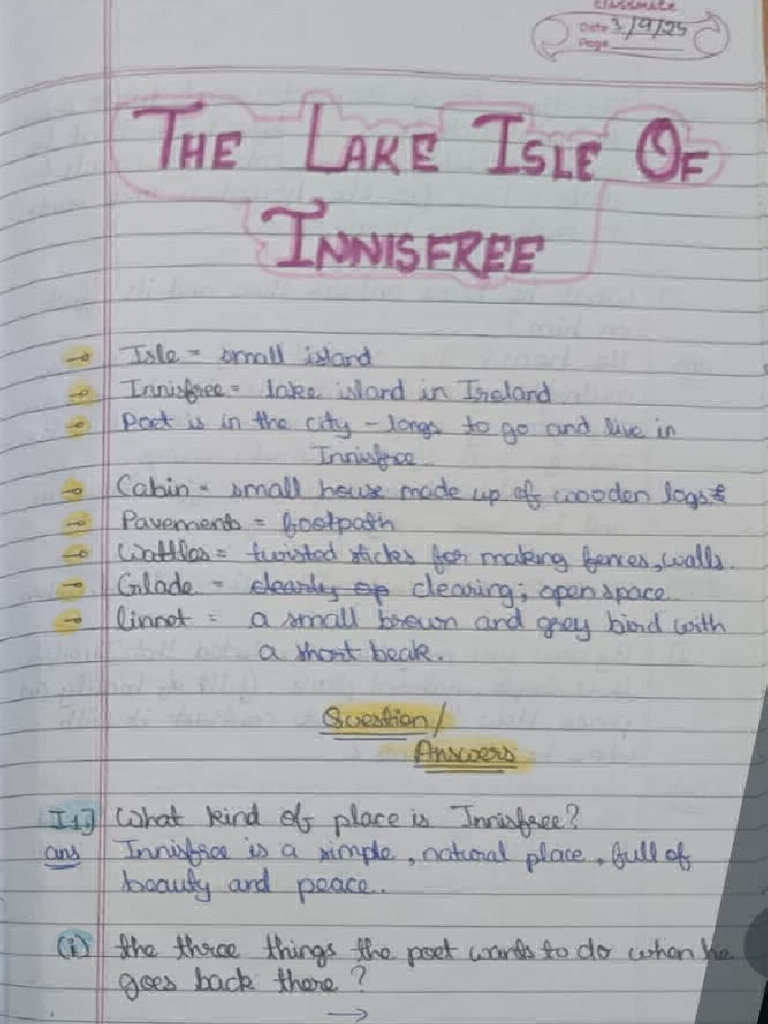 classmate
Date 3/9/25
Page
THE LAKE ISLE OF
INNISFREE
Isle = small island
Innisfree = lake island in Ireland
Poet is in the city - longs to go and live in
Innisfree.
Cabin = small house made up of wooden logs
Pavements = footpath
Wattles = twisted sticks for making fences, walls.
Glade = clearly op clearing; open space.
linnet = a small brown and grey bird with
a short beak.
Question/
Answers
I 1] What kind of place is Innisfree?
ans Innisfree is a simple, natural place, full of
beauty and peace..
(i) the three things the poet wants to do when he
goes back there?
→